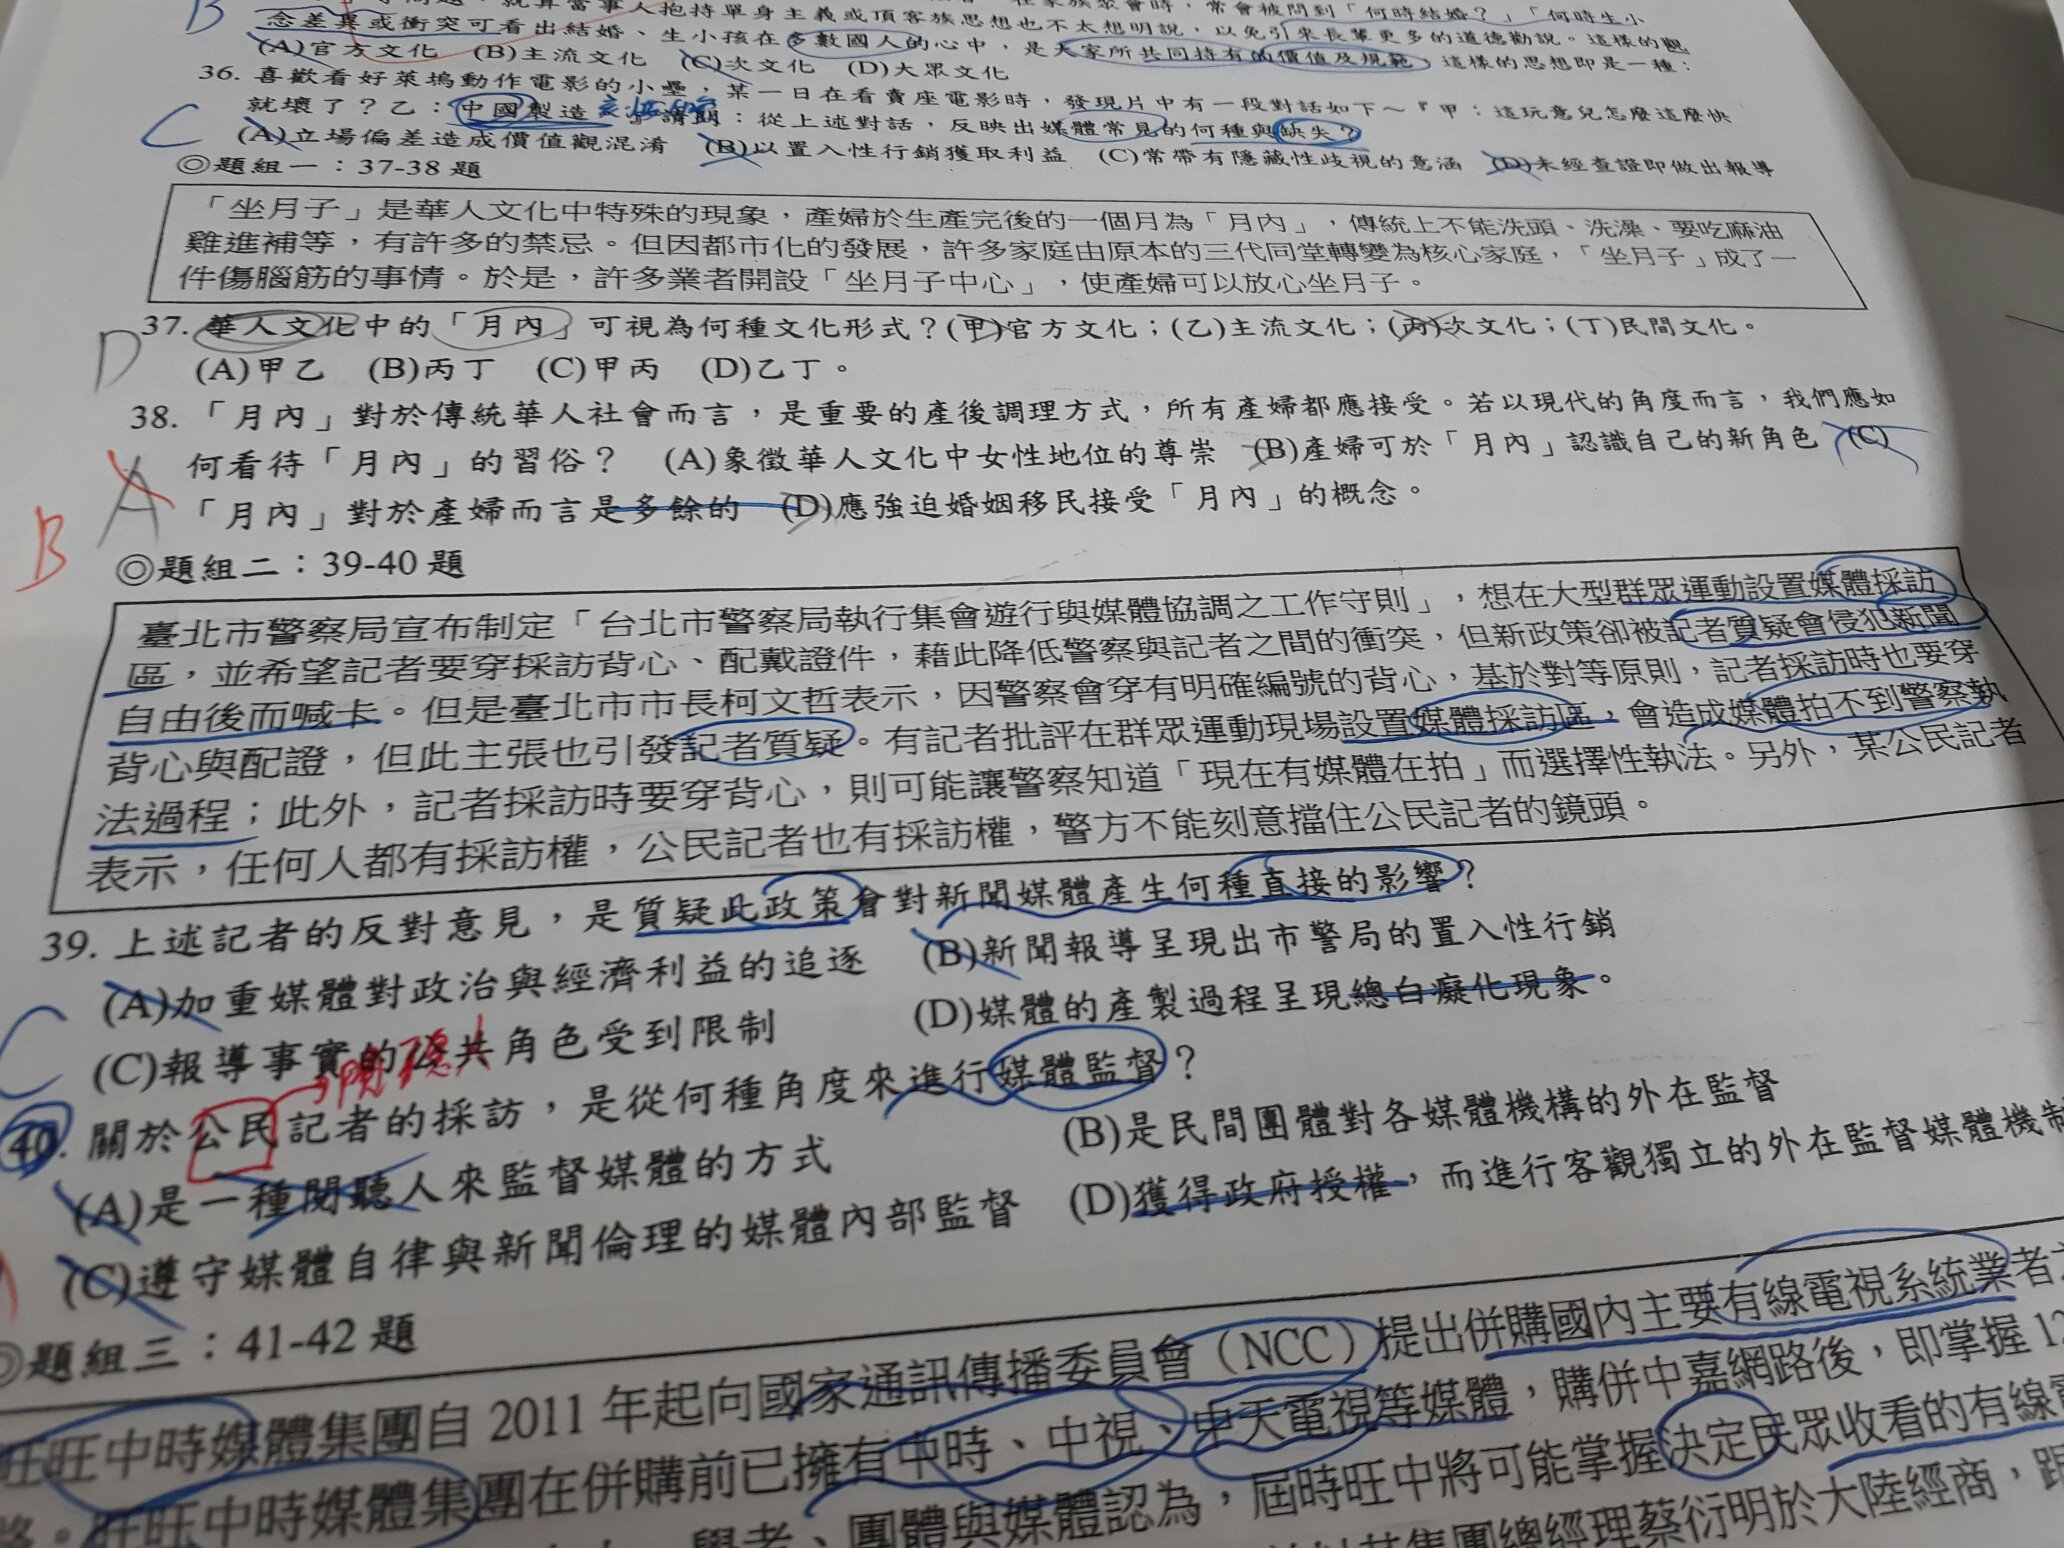 念差異或衝突可看出結婚、生小孩在多數國人的心中，是大家所共同持有的價值及規範，這樣的思想即是一種：
(A)官方文化 (B)主流文化 (C)次文化 (D)大眾文化
36. 喜歡看好萊塢動作電影的小壘，某一日在看賣座電影時，發現片中有一段對話如下～『甲：這玩意兒怎麼這麼快
就壞了？乙：中國製造 』請問：從上述對話，反映出媒體常見的何種與缺失？
C
(A)立場偏差造成價值觀混淆 (B)以置入性行銷獲取利益 (C)常帶有隱藏性歧視的意涵 (D)未經查證即做出報導
◎題組一：37-38 題
「坐月子」是華人文化中特殊的現象，產婦於生產完後的一個月為「月內」，傳統上不能洗頭、洗澡、要吃麻油
雞進補等，有許多的禁忌。但因都市化的發展，許多家庭由原本的三代同堂轉變為核心家庭，「坐月子」成了一
件傷腦筋的事情。於是，許多業者開設「坐月子中心」，使產婦可以放心坐月子。
D 37. 華人文化中的「月內」可視為何種文化形式？(甲)官方文化；(乙)主流文化；(丙)次文化；(丁)民間文化。
(A)甲乙 (B)丙丁 (C)甲丙 (D)乙丁。
38. 「月內」對於傳統華人社會而言，是重要的產後調理方式，所有產婦都應接受。若以現代的角度而言，我們應如
何看待「月內」的習俗？ (A)象徵華人文化中女性地位的尊崇 (B)產婦可於「月內」認識自己的新角色 (C)
A
「月內」對於產婦而言是多餘的 (D)應強迫婚姻移民接受「月內」的概念。
B
◎題組二：39-40 題
臺北市警察局宣布制定「台北市警察局執行集會遊行與媒體協調之工作守則」，想在大型群眾運動設置媒體採訪
區，並希望記者要穿採訪背心、配戴證件，藉此降低警察與記者之間的衝突，但新政策卻被記者質疑會侵犯新聞
自由後而喊卡。但是臺北市市長柯文哲表示，因警察會穿有明確編號的背心，基於對等原則，記者採訪時也要穿
背心與配證，但此主張也引發記者質疑。有記者批評在群眾運動現場設置媒體採訪區，會造成媒體拍不到警察執
法過程；此外，記者採訪時要穿背心，則可能讓警察知道「現在有媒體在拍」而選擇性執法。另外，某公民記者
表示，任何人都有採訪權，公民記者也有採訪權，警方不能刻意擋住公民記者的鏡頭。
39. 上述記者的反對意見，是質疑此政策會對新聞媒體產生何種直接的影響？
(A)加重媒體對政治與經濟利益的追逐 (B)新聞報導呈現出市警局的置入性行銷
C (C)報導事實的公共角色受到限制 (D)媒體的產製過程呈現總白癡化現象。
40. 關於公民記者的採訪，是從何種角度來進行媒體監督？
(A)是一種閱聽人來監督媒體的方式 (B)是民間團體對各媒體機構的外在監督
(C)遵守媒體自律與新聞倫理的媒體內部監督 (D)獲得政府授權，而進行客觀獨立的外在監督媒體機制
◎題組三：41-42 題
旺旺中時媒體集團自 2011 年起向國家通訊傳播委員會（NCC）提出併購國內主要有線電視系統業者
旺旺中時媒體集團在併購前已擁有中時、中視、中天電視等媒體，購併中嘉網路後，即掌握 12
學者、團體與媒體認為，屆時旺中將可能掌握決定民眾收看的有線
集團總經理蔡衍明於大陸經商，